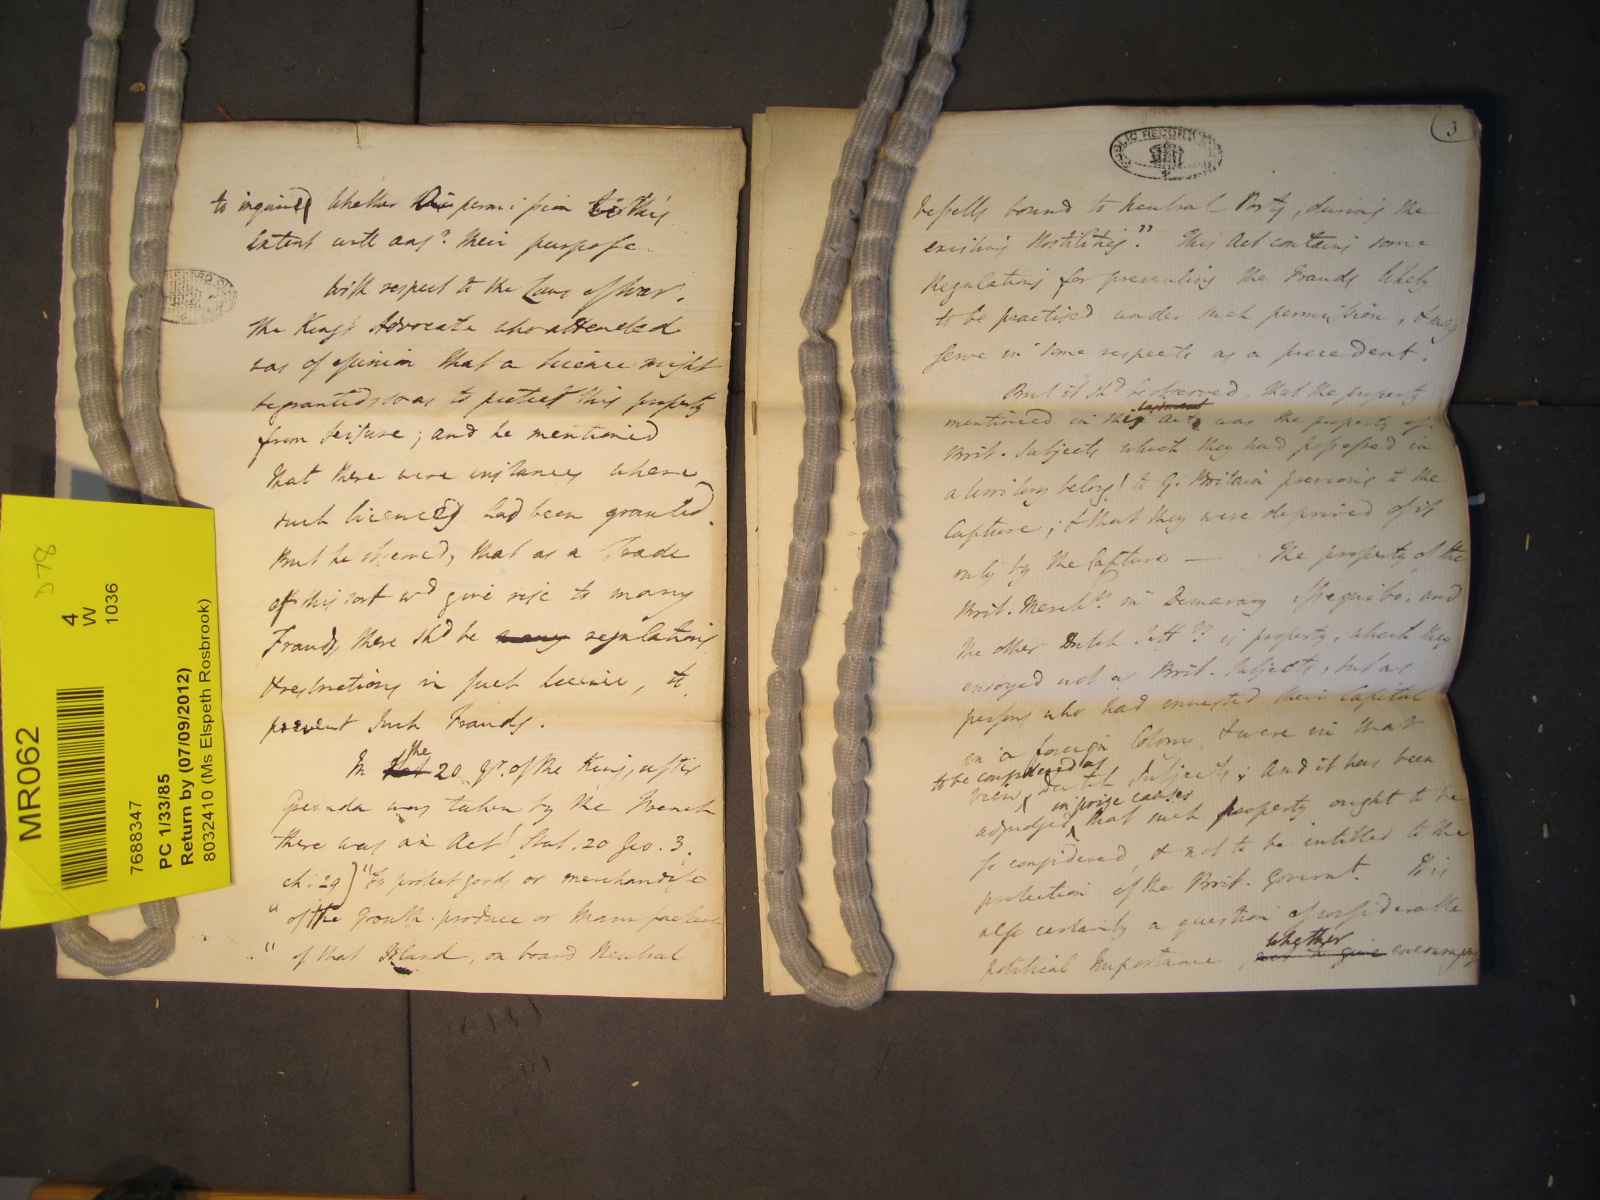 to inquire, Whether permission to this
extent will ansr. their purpose.
With respect to the Laws of War.
the King's Advocate who attended
was of opinion that a licence might
be granted so as to protect this property
from seizure; and he mentioned
that there were instances where
such licences had been granted.
But he observed, that as a Trade
of this sort wd. give rise to many
Frauds, there shd be many regulations
& restrictions in such licence, to
prevent such Frauds.
In the 20 yr. of the King, after
Grenada was taken by the French
there was an Act Stat. 20 Geo. 3.
ch: 29) "To protect goods or merchandise
" of the Growth produce or Manufacture
" of that Island, on board Neutral
PUBLIC RECORD OFFICE
3
Vessells bound to neutral Ports, during the
existing Hostilities". This Act contains some
Regulations for preventing the Frauds likely
to be practised under such permission, & may
serve in some respects as a precedent.
But it shd be observed, that the property
mentioned in this Act was the property of
Brit. Subjects which they had possessed in
a territory belongg. to G. Britain previous to the
Capture; & that they were deprived of it
only by the Capture — The property of the
Brit. Merchts. in Demarary Issequibo, and
the other Dutch Settts. is property, which they
enjoyed not as Brit. Subjects, but as
persons who had invested their Capital
in a foreign Colony, & were in that
to be considered as
view, Dutch Subjects; And it has been
in prize causes
adjudged, that such property ought to be
so considered, & not to be entitled to the
protection of the Brit. Governt. It is
also certainly a question of considerable
whether
political Importance, encouraging
MR062
D78
4
W
1036
7688347
PC 1/33/85
Return by (07/09/2012)
8032410 (Ms Elspeth Rosbrook)